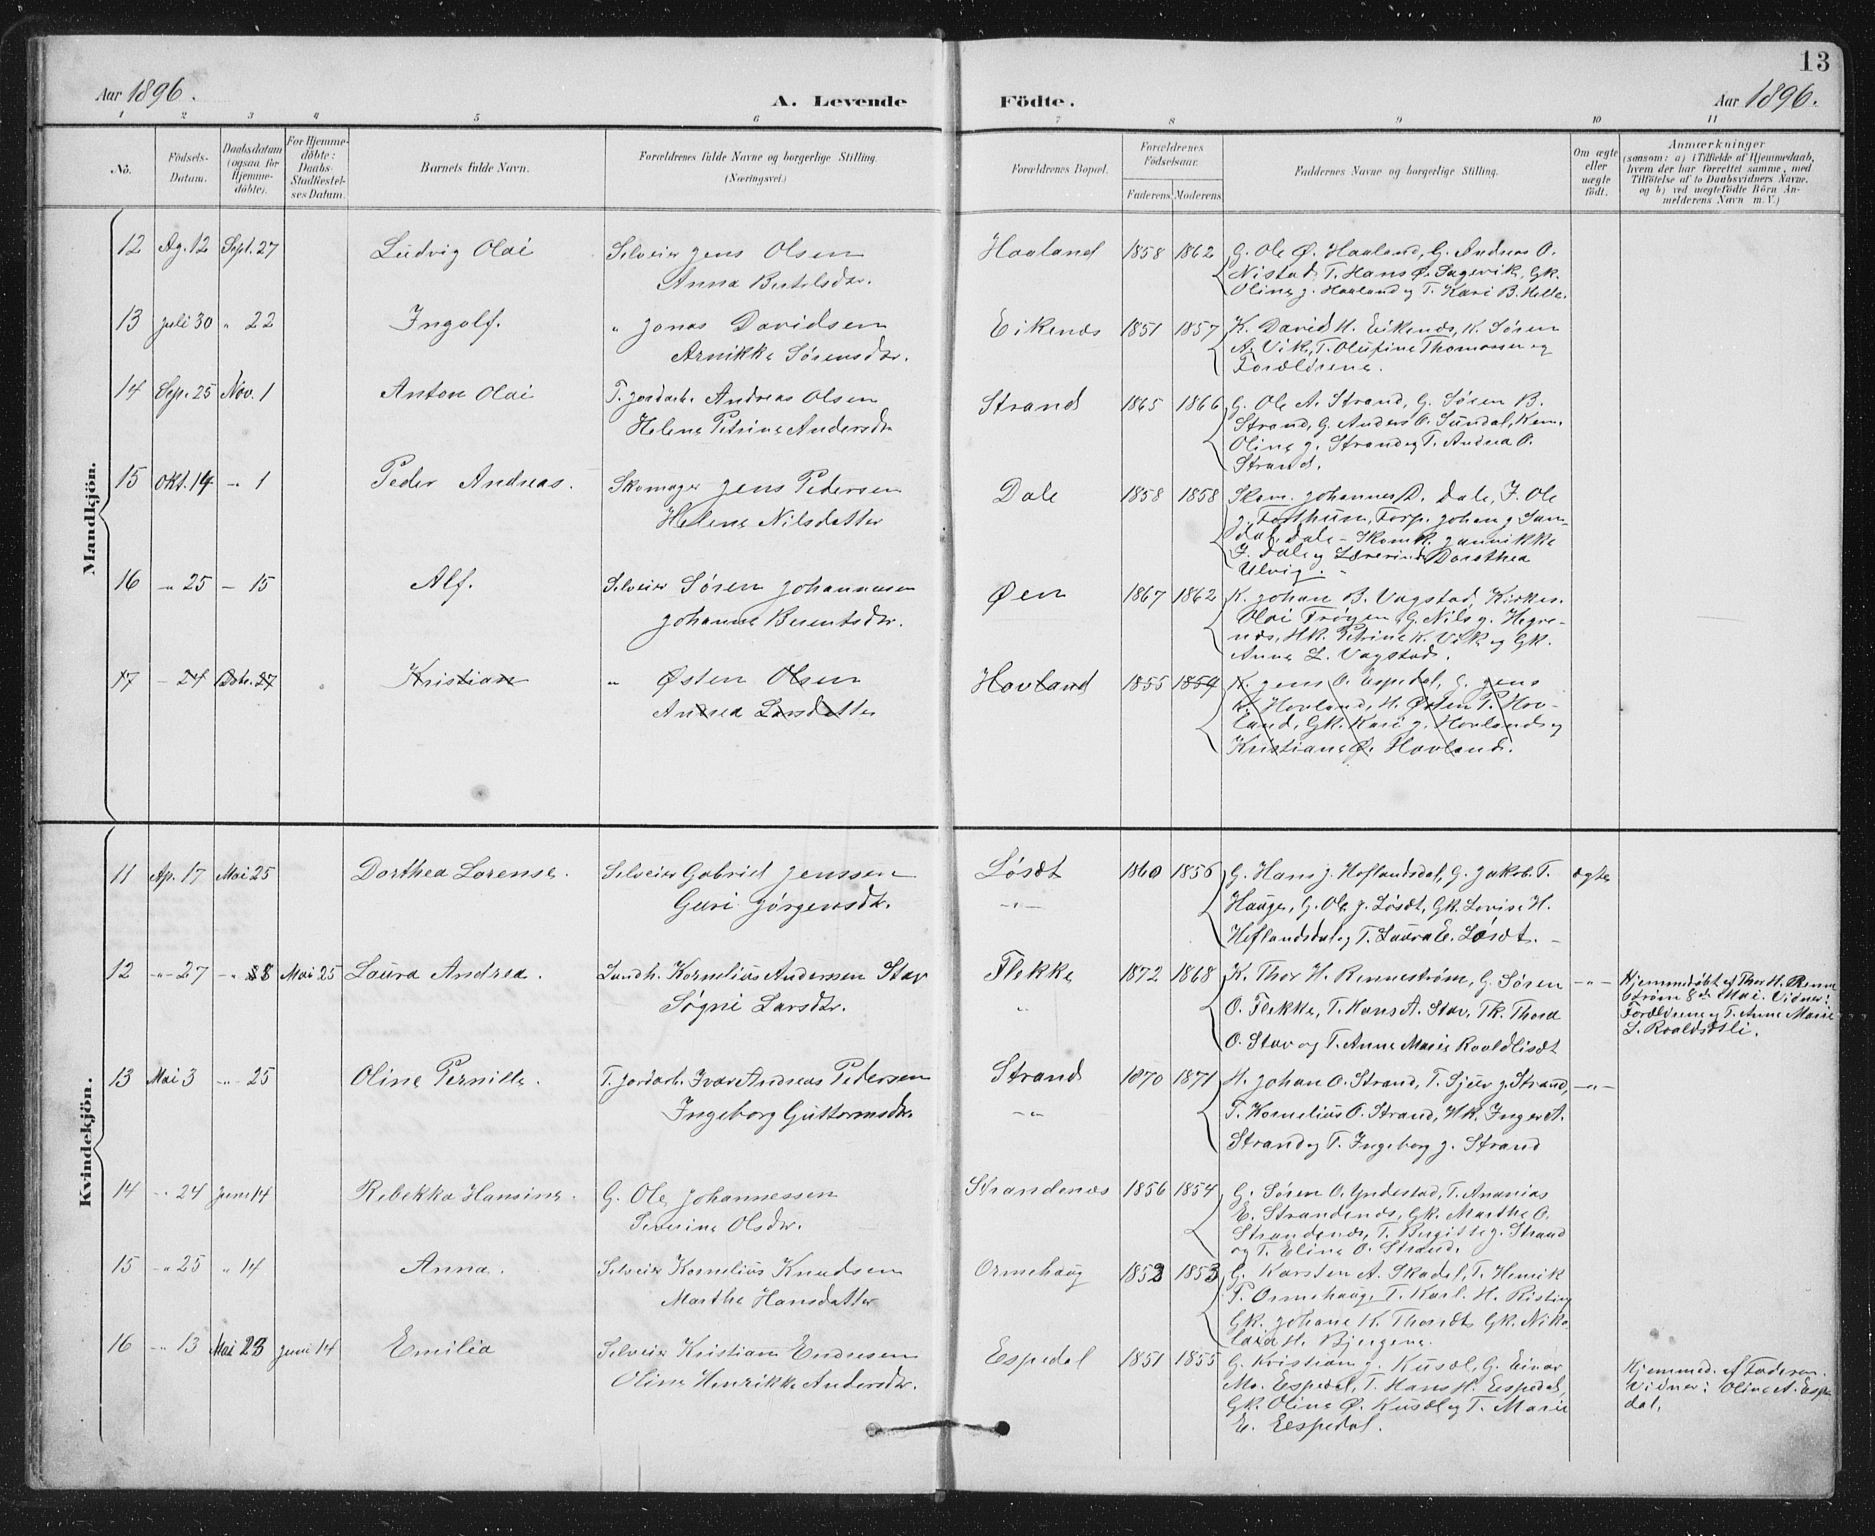 13
Aar 1896. A. Levende Födte. Aar 1896.
1 2 3 4 5 6 7 8 9 10 11
No. Födsels-Datum. Daabsdatum (ogsaa for Hjemme-döbte). For Hjemme-döbte: Daabs-Stadfæstel-ses Datum. Barnets fulde Navn. Forældrenes fulde Navne og borgerlige Stilling. (Næringsvei.) Forældrenes Bopæl. Forældrenes Födselsaar. Faderens Moderens Faddernes Navne og borgerlige Stilling. Om ægte eller uægte födt. Anmærkninger (saasom: a) i Tilfælde af Hjemmedaab, hvem der har forrettet samme, med Tilföielse af to Daabsvidners Navne, og b) ved uægtefödte Börn Anmelderens Navn m. V.)
Mandkjön.
12 Ag. 12 Sept. 27 Ludvig Olai Selveier Jens Olsen Haaland 1858 1862 G. Ole Ø. Haaland, G. Andreas O.
Anna Bertelsdtr. Nistad, T. Hans Ø. Sagevik, Gk.
Oline J. Haaland og T. Kari B. Helle.
13 Juli 30 " 22 Ingolf. " Jonas Davidsen Eikenæs 1851 1857 K. David H. Eikenæs, K. Søren
Arnikke Sørensdtr. A. Vik, T. Olufine Thomassen og
Forældrene.
14 Sep. 25 Nov. 1 Anton Olai T. Jordarb. Andreas Olsen Strand 1865 1866 G. Ole A. Strand, G. Søren B.
Helene Petrine Andersdtr Strand, G. Anders O. Sundal, Kem.
Oline J. Strand og T. Andrea O.
Strand.
15 Okt. 14 " 1 Peder Andreas. Skomager Jens Pedersen Dale 1858 1858 Skom. Johannes D. Dale, F. Ole
Helene Nilsdatter J. Forthun, Forp. Johan J. Sandal, Dale - Skomk. Jannikke
J. Dale og Lærerinde Dorothea
Ulvig.
16 " 25 " 15 Alf. Selveier Søren Johannesen Øen 1867 1862 K. Johan B. Vagstad, Kirkes.
Johanne Berentsdtr. Olai Frøyen, G. Nils J. Hegrenæs, Hk. Petrine K. Vik og Gk.
Anne L. Vagstad.
17 " 24 Dcbr. 27 Kristian " Østen Olsen Hovland 1855 1859 K. Jens O. Espedal, G. Jens
Andrea Larsdatter K. Hovland, H. Østen P. Hovland, Gk. Kari J. Hovland og
Kristiane Ø. Hovland.
Kvindekjön.
11 Ap. 17 Mai 25 Dorthea Lorense. Selveier Gabriel Jenssen Løsæt 1860 1856 G. Hans J. Heflandsdal, G. Jakob T. ægte
Guri Jørgensdtr. -"- Hauge, G. Ole J. Løsæt, Gk. Lovise H.
Heflandsdal og T. Laura E. Løsæt.
12 " 27 " 8 Mai 25 Laura Andrea. Landh. Kornelius Anderssen Stav Flekke 1872 1868 K. Thor H. Rennestrøm, G. Søren -"- Hjemmedøbt af Thor H. Renne
Søgni Larsdtr. " O. Flekke, T. Hans A. Stav, Tk. Thora strøm 8de Mai. Vidner:
O. Stav og T. Anne Marie Roaldlisæt Forældrene og T. Anne Marie
L. Roaldsetli.
13 Mai 3 " 25 Oline Pernille. T. Jordarb. Ivar Andreas Pedersen Strand 1870 1871 H. Johan O. Strand, T. Sjur J. Strand, -"-
Ingeborg Guttormsdtr. -"- T. Kornelius O. Strand, Hk. Inger A.
Strand og T. Ingeborg J. Strand
14 " 24 Juni 14 Rebekka Hansine. G. Ole Johannessen Strandenæs 1856 1854 G. Søren O. Yndestad, T. Ananias
Severine Olsdtr. E. Strandenæs, Gk. Marthe O.
Strandenæs, T. Birgitte J. Strand
og T. Eline O. Strand.
15 " 25 " 14 Anna. Selveier Kornelius Knudsen Ormehaug 1853 1853 G. Karsten A. Skadal, T. Henrik
Marthe Hansdatter P. Ormehaug, T. Karl H. Risting
Gk. Johane K. Thoræt, Gk. Nikolaia H. Bjergene.
16 " 13 Mai 23 Juni 14 Emilia Selveier Kristian Endresen Espedal 1851 1855 G. Kristian J. Kusæl, G. Einar Hjemmed. af Faderen.
Oline Henrikke Andersdtr. Mo. Espedal, T. Hans H. Espedal, Vidner: Oline A. Espe
Gk. Oline Ø. Kusæl og T. Marie dal.
E. Espedal.